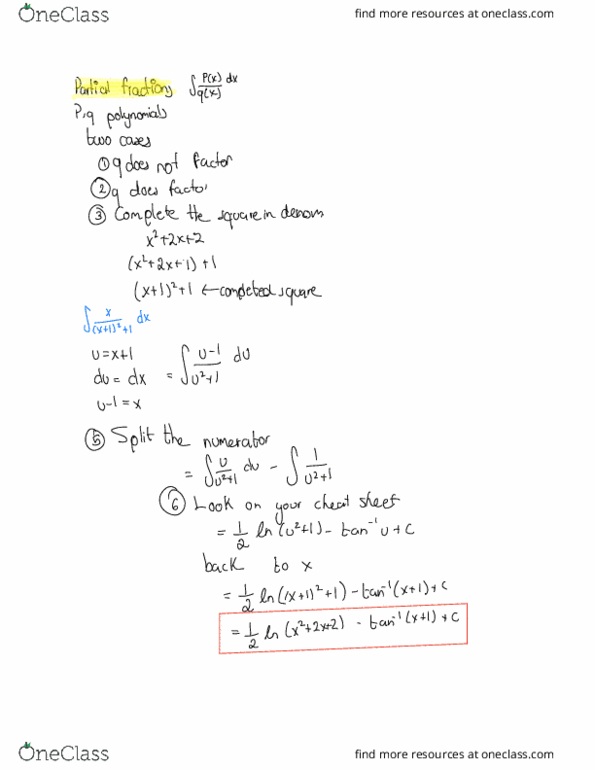 OneClass find more resources at oneclass.com
Partial fractions ∫ P(x)/q(x) dx
P,q polynomials
two cases
① q does not factor
② q does factor
③ Complete the square in denom
x²+2x+2
(x²+2x+1)+1
(x+1)²+1 ← completed square
∫ x/((x+1)²+1) dx
u=x+1
du=dx = ∫ (u-1)/(u²+1) du
u-1=x
⑤ Split the numerator
= ∫ u/(u²+1) du - ∫ 1/(u²+1)
⑥ Look on your cheat sheet
= 1/2 ln(u²+1) - tan⁻¹ u + c
back to x
= 1/2 ln((x+1)²+1) - tan⁻¹(x+1) + c
= 1/2 ln(x²+2x+2) - tan⁻¹(x+1) + c
OneClass find more resources at oneclass.com